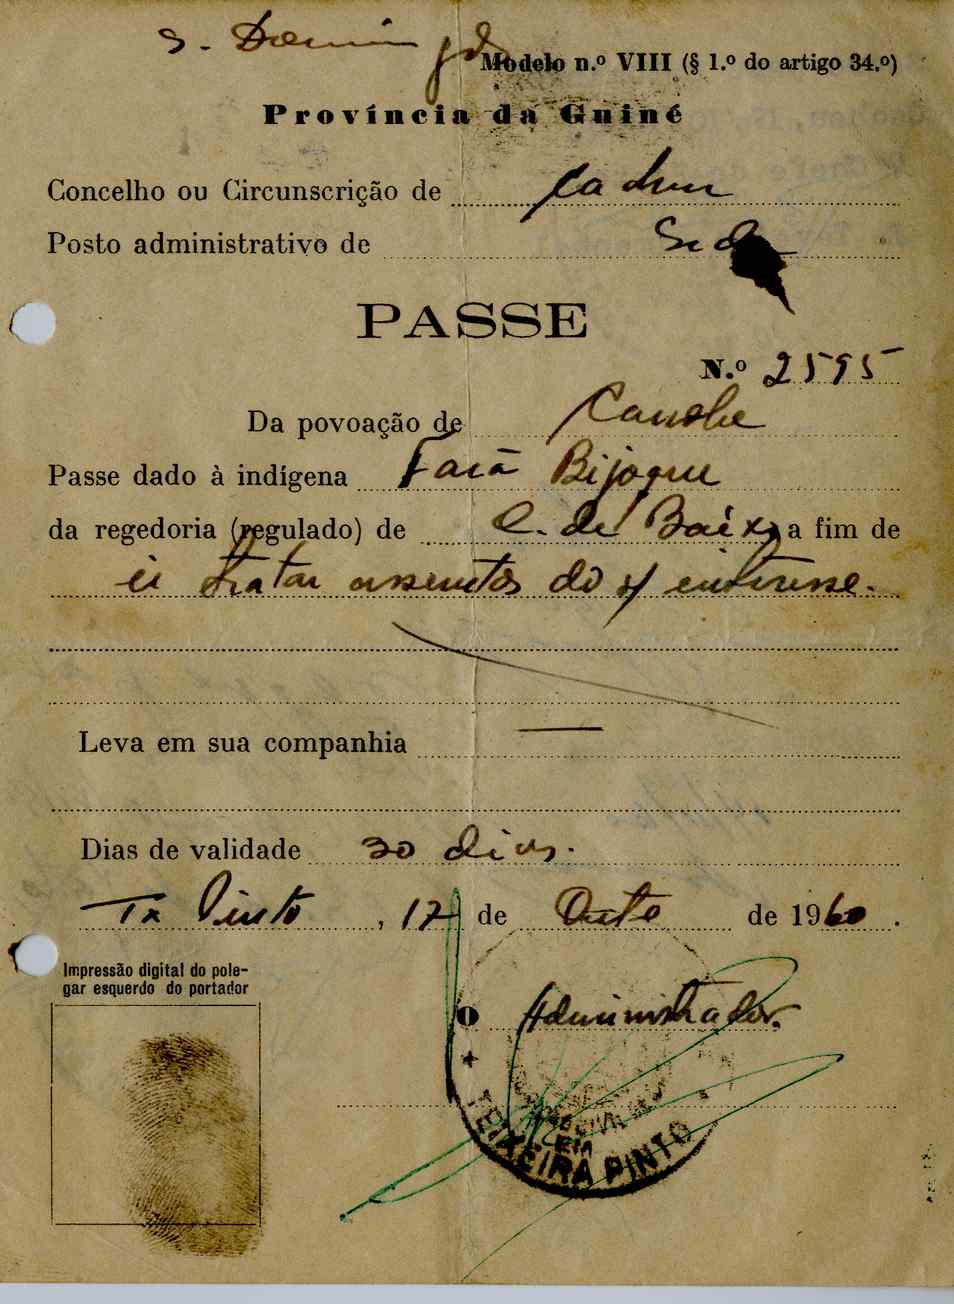 S. Domingos
Modelo n.º VIII (§ 1.º do artigo 34.º)
Província da Guiné
Concelho ou Circunscrição de Cacheu
Posto administrativo de Sede
PASSE
N.º 2595
Da povoação de
Passe dado à indígena Bijoque
da regedoria (regulado) de C. de Baixo a fim de
ir tratar assuntos do s/ intresse.
Leva em sua companhia —
Dias de validade 30 dias.
Tx Pinto, 17 de Outo de 1960.
Impressão digital do pole-
gar esquerdo do portador
O Administrador.
TEIXEIRA PINTO